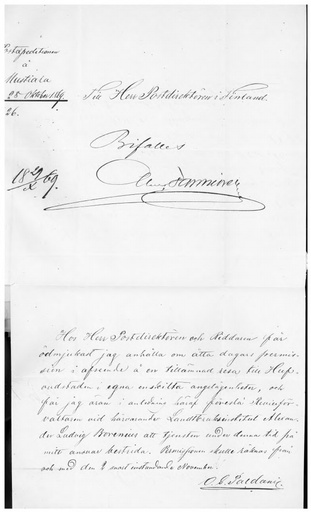 Postexpeditionen
å
Mustiala
28 Oktober 1869
26.
Till Herr Postdirektören i Finland.
Bifalles
18 29/X 69.
Hos Herr Postdirektören och Riddaren får
ödmjukast jag anhålla om åtta dagars permis-
sion i afseende å en tillämnad resa till Huf-
vudstaden i egna enskilta angelägenheter, och
får jag äran i anledning häraf föreslå
vid härvarande Landtbruksinstitut Alexan-
der Ludvig Borenius att tjensten under denna tid på
mitt ansvar bestrida. Permissionen skulle räknas från
och med den 2 nästinstundande November.